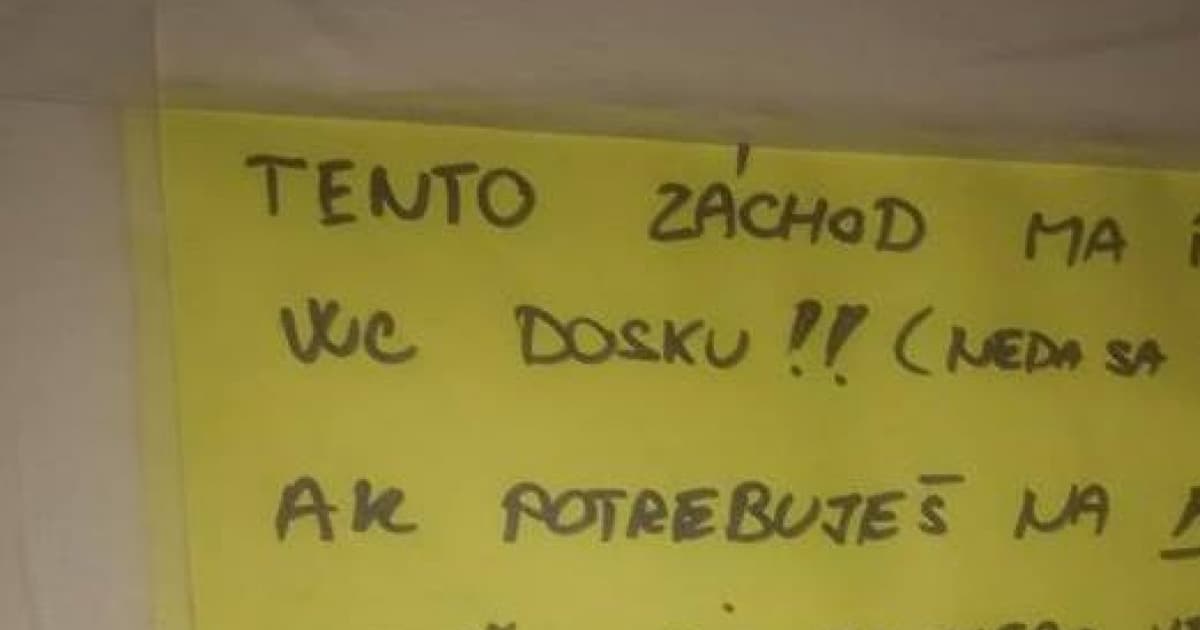 TENTO ZÁCHOD MA
WC DOSKU!! (NEDA SA
AK POTREBUJEŠ NA